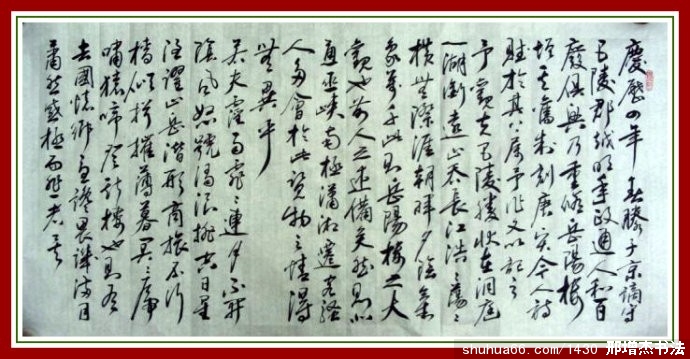 慶歷四年春滕子京謫守
巴陵郡越明年政通人和百
廢俱興乃重修岳陽樓
增其舊制刻唐賢今人詩
賦於其上屬予作文以記之
予觀夫巴陵勝狀在洞庭
一湖銜遠山吞長江浩々蕩々
橫無際涯朝暉夕陰氣
象萬千此則岳陽樓之大
觀也前人之述備矣然則北
通巫峽南極瀟湘遷客騷
人多會於此覽物之情得
無異乎
若夫霪雨霏々連月不開
陰風怒號濁浪排空日星
隱曜山岳潛形商旅不行
檣傾楫摧薄暮冥々虎
嘯猿啼登斯樓也則有
去國懷鄉憂讒畏譏滿目
蕭然感極而悲者矣
shuhua66.com/1430 邢增杰书法